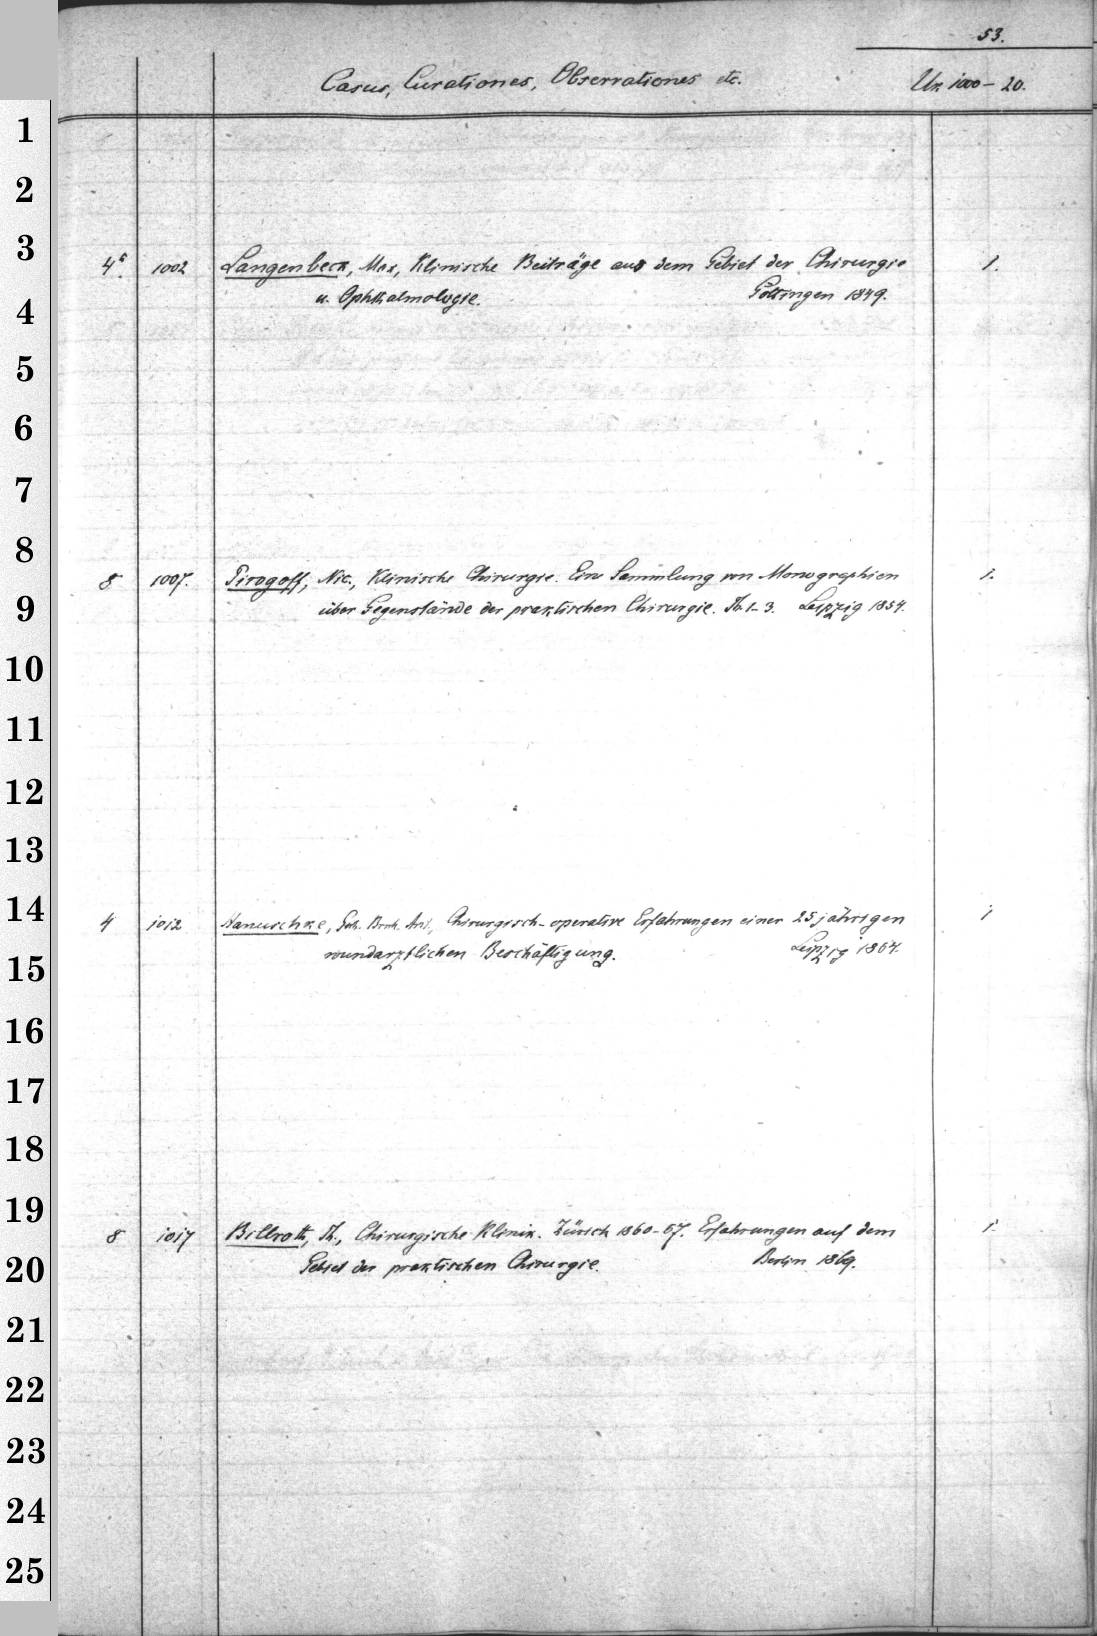 53.
Casus, Curationes, Observationes etc. Un 1000-20.
1
2
3
4° 1002 Langenbeck, Max, Klinische Beiträge aus dem Gebiet der Chirurgie 1.
u. Ophthalmologie. Göttingen 1849.
4
5
6
7
8
8 1007. Pirogoff, Nic., Klinische Chirurgie. Eine Sammlung von Monographien 1.
über Gegenstände der praktischen Chirurgie. Th. 1-3. Leipzig 1854.
9
10
11
12
13
14
4 1012 Hanuschke, Joh. Bernh. Ant., Chirurgisch-operative Erfahrungen einer 25jährigen 1
wundarztlichen Beschäftigung. Leipzig 1864.
15
16
17
18
19
8 1017 Billroth, Th., Chirurgische Klinik. Zürich 1860-67. Erfahrungen auf dem 1.
Gebiet der praktischen Chirurgie. Berlin 1869.
20
21
22
23
24
25